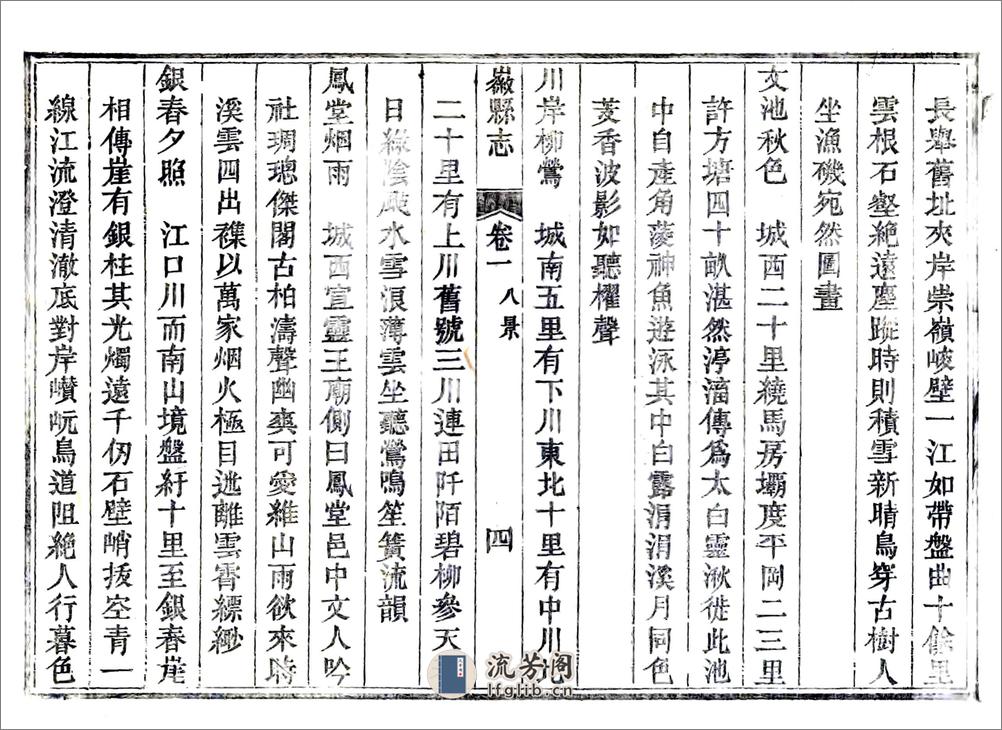 長舉舊址夾岸崇嶺峻壁一江如帶盤曲十餘里
雲根石壑絕遠塵蹤時則積雪新晴鳥穿古樹人
坐漁磯宛然圖畫
文池秋色　城西二十里繞馬房壩度平岡二三里
許方塘四十畝湛然渟滀傳爲太白靈湫徙此池
中自產角菱神魚遊泳其中白露涓涓溪月同色
芰香波影如聽櫂聲
川岸柳鶯　城南五里有下川東北十里有中川
徽縣志　卷一　八景　四
二十里有上川舊號三川連田阡陌碧柳參天
日綠陰颭水雪浪薄雲坐聽鶯鳴笙簧流韻
鳳堂烟雨　城西宣靈王廟側曰鳳堂邑中文人吟
社琱璁傑閣古柏濤聲幽爽可愛維山雨欲來時
溪雲四出襍以萬家烟火極目迷離雲霄縹緲
銀春夕照　江口川而南山境盤紆十里至銀春崖
相傳崖有銀柱其光燭遠千仞石壁峭拔空青一
線江流澄清澈底對岸巑岏鳥道阻絕人行暮色
流芳閣
lfglib.cn